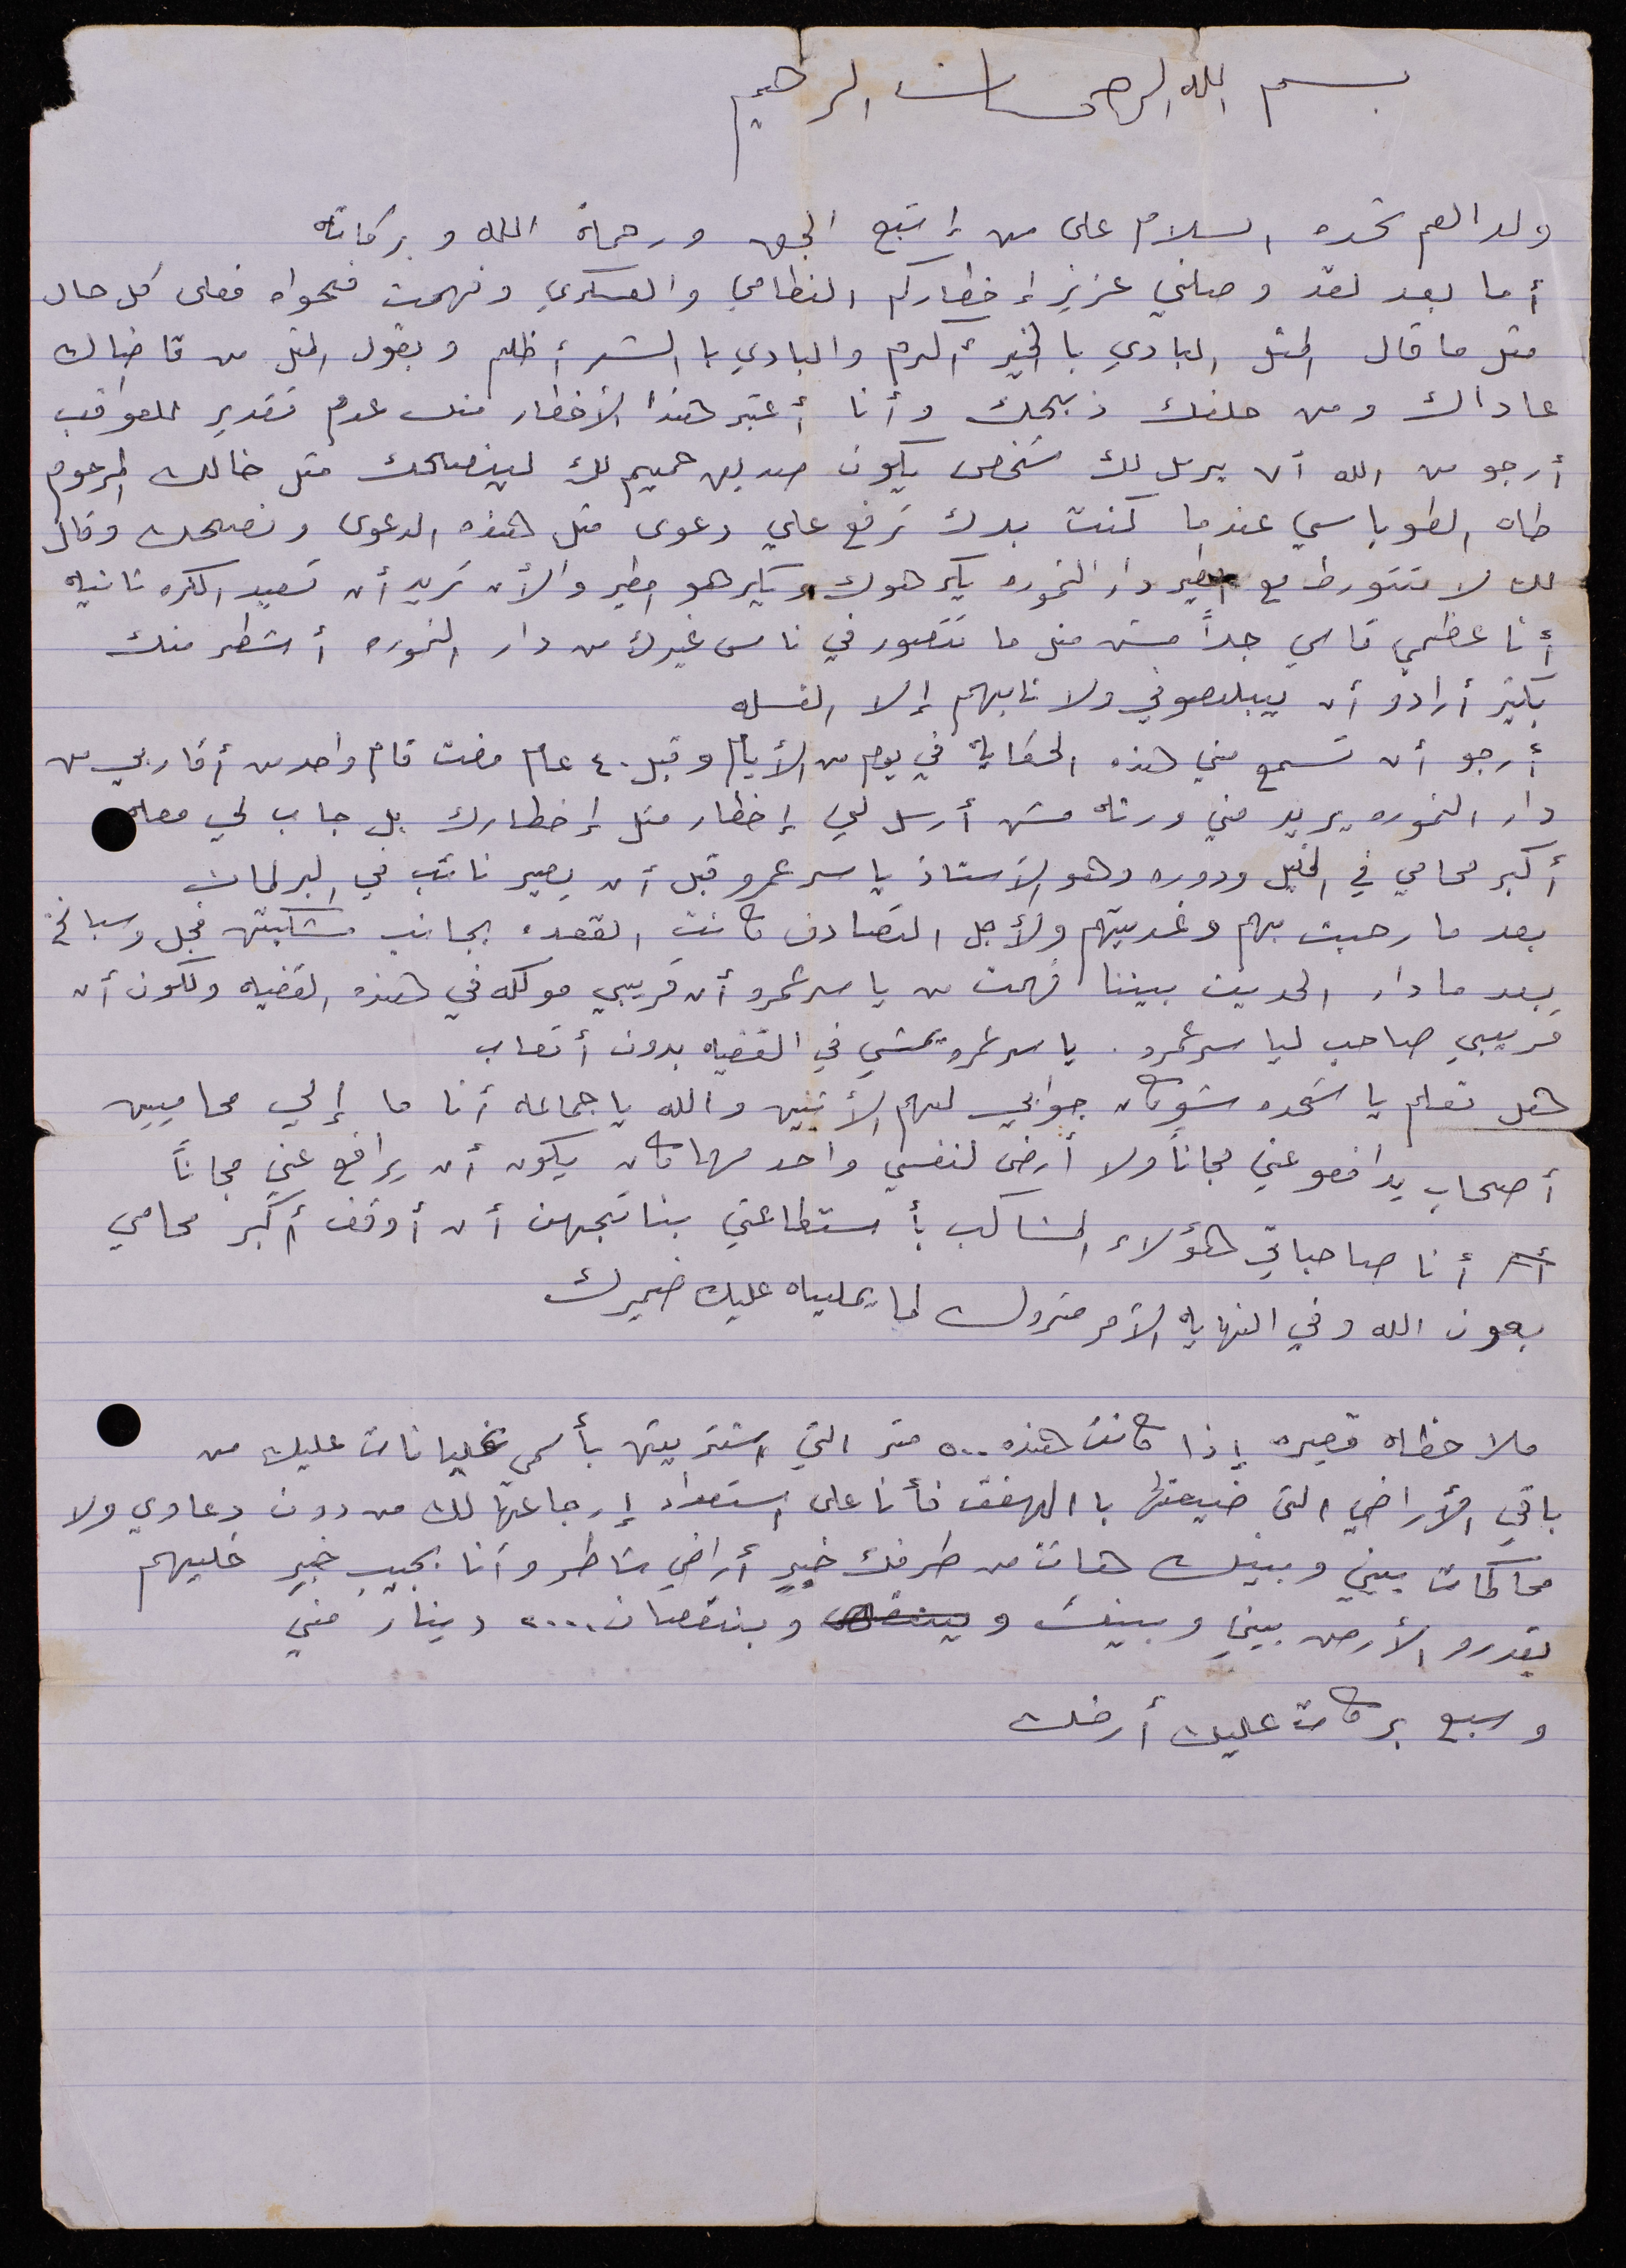 بسم الله الرحمان الرحيم
ولد العم شحده السلام على من إتبع الحق ورحماة الله وبركاته
أما بعد لقد وصلني عزيز إخطاركم النظامي والعسكري وفهمت فحواه فعلى كل حال
مثل ما قال المثل البادي بالخير أكرم والبادي با الشر أظلم وبقول المثل من قاضاك
عاداك ومن حلفك ذبحك وأنا أعتبر هذا الأخطار منك عدم تقدير للعواقب
أرجو من الله أن يرسل لك شخص يكون صديق حميم لك لينصحك مثل خالك المرحوم
طاه الطوباسي عندما كنت بدك ترفع علي دعوى مثل هذه الدعوى ونصحك وقال
لك لا تتورط مع امطير دار النموره يكرهوك وبكرهو امطير والأن تريد أن تعيد الكره ثانيه
أنا عظمي قاسي جداً مش مثل ما تتصور في ناس غيرك من دار النموره أشطر منك
بكثير أرادو أن يبلصوني ولا نابهم إلا الفسله
أرجو أن تسمع مني هذه الحكاية في يوم من الأيام وقبل ٤٠ عام مضت قام واحد من أقاربي من
دار النموره يريد مني ورثه مش أرسل لي إخطار مثل إخطارك بل جاب لي معه
أكبر محامي في الخليل ودوره وهو الأستاذ ياسر عمرو قبل أن يصير نائب في البرلمان
بعد ما رحبت بهم وغديتهم ولأجل التصادف كانت القعده بجانب مشكبتين فجل وسبانخ
بعد ما دار الحديث بيننا فهمت من ياسر عمرو أن قريبي موكله في هذه القضيه ولكون أن
قريبي صاحب ليا سر عمرو. ياسر عمرو يمشي في القضيه بدون أتعاب
هل تعلم يا شحده شو كان جوابي لهم الأثنين والله يا جماعه أنا ما إلي محاميين
أصحاب يدافعو عني مجاناً ولا أرضى لنفسي واحد مهما كان يكون أن يرافع عني مجاناً
أنا صاحباتي هؤلاء المشاكب بأستطاعتي بناتجهن أن أوقف أكبر محامي
بعون الله وفي النهايه الأمر متروك لما يمليه عليك ضميرك
ملاحظاه قصيره إذا كانت هذه ٥٠٠ متر التي اشتريتها بأسمي غليانات عليك من
باقي الأراضي التي ضيعتها با الهفف فأنا على استعداد إرجاعتها لك من دون دعاوي ولا
محاكمات بيني وبينك هات من طرفك خبير أراضي شاطر وأنا بجيب خبير خليهم
يقدرو الأرض بيني وبينك وبنقصان ٢٠٠٠ دينار مني
وسبع بركات عليك أرضك